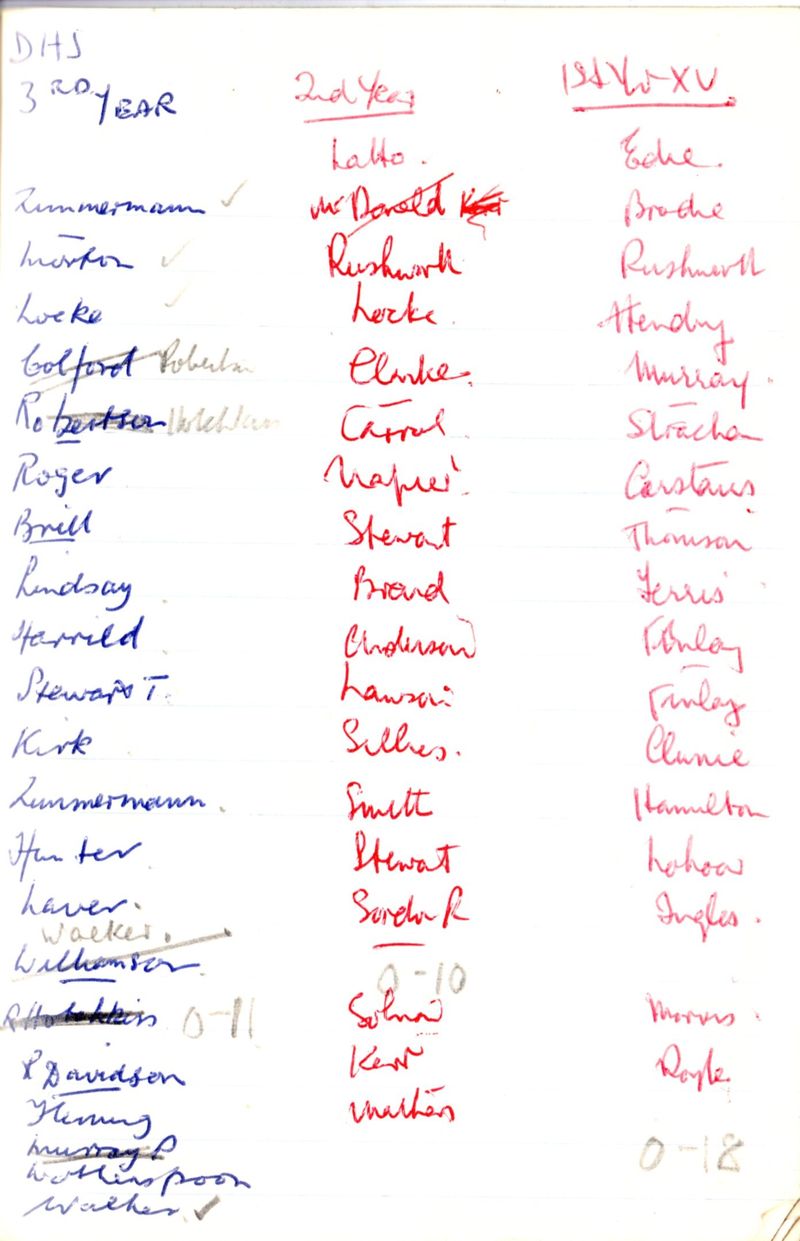 DHS
3RD YEAR
Zimmermann
Morton
Locke
Golford
Robertson
Roger
Brill
Lindsay
Harrild
Stewart T.
Kirk
Zimmermann.
Hunter
Laver.
Walker.
Williamson.
Hotchkiss 0-11
R Davidson
Fleming
Murray P
Wotherspoon
Walker
2nd Year
Latto.
McDonald Kerr
Rushworth
Locke.
Clarke.
Carrol
Napier.
Stewart
Brand
Anderson
Lawson.
Smith
Stewart
Gordon R
0-10
Kerr
Mathers
1st Yr XV.
Edie.
Brodie
Rushworth
Hendry
Murray.
Strachan
Carstairs
Thomson
Ferris
Finlay
Finlay
Clunie
Hamilton
Inglis.
Morris.
0-18